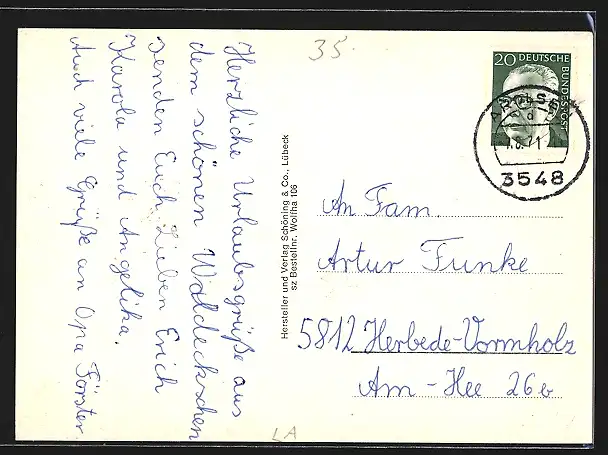 Herzliche Urlaubsgrüße aus
dem schönen Waldeckschen
senden Euch Lieben Erich
Karola und Angelika.
Auch viele Grüße an Opa Förster
35.
Hersteller und Verlag Schöning & Co., Lübeck
sz Bestellnr. Wolfha 106
20 DEUTSCHE
BUNDESPOST
AROLSEN
d
.8.71
3548
An Fam.
Artur Funke
5812 Herbede-Vormholz
Am - Hee 26b
LA